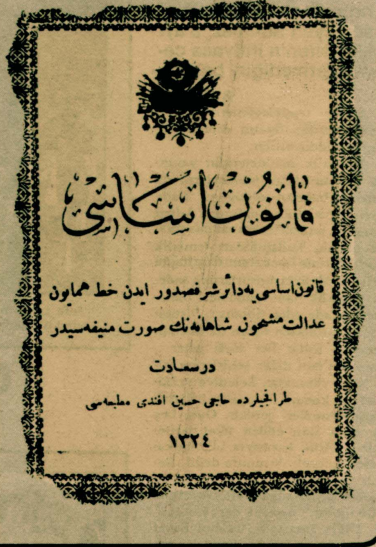 قانون اساسی
قانون اساسی یه دائر شرفصدور ایدن خط همایون
عدالت مشحون شاهانه نك صورت منیفه سیدر
درسعادت
طرابجیلرده حاجی حسین افندی مطبعه سی
١٣٢٤